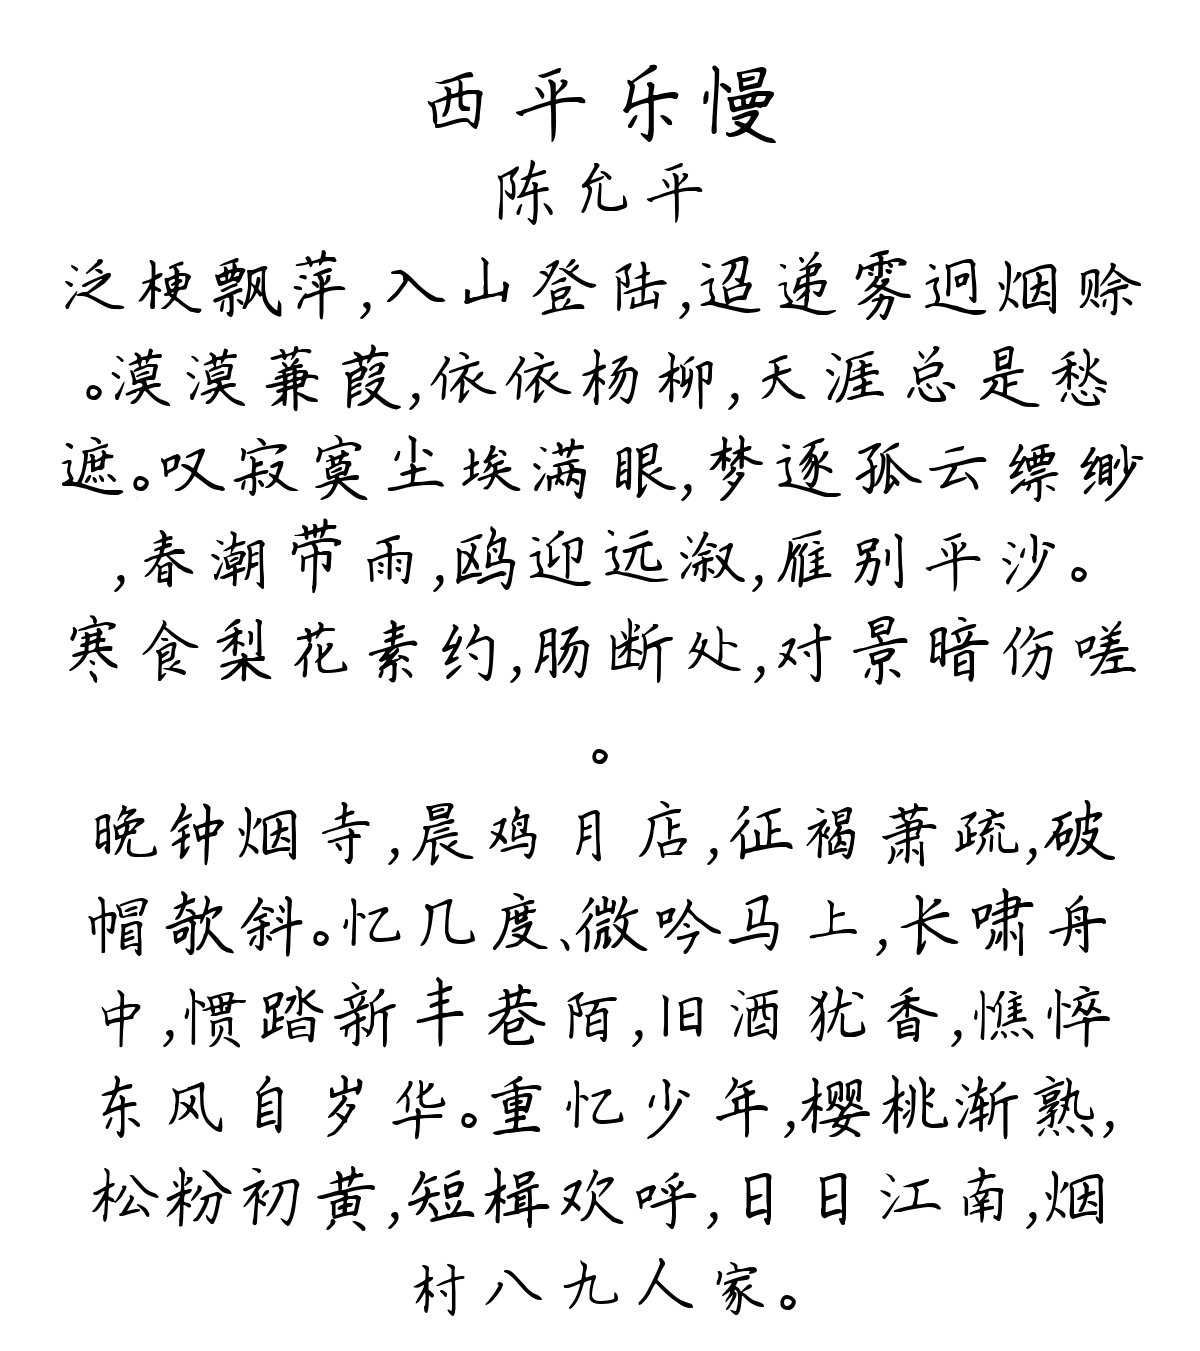 西平乐慢
陈允平
泛梗飘萍,入山登陆,迢递雾迥烟赊
。漠漠蒹葭,依依杨柳,天涯总是愁
遮。叹寂寞尘埃满眼,梦逐孤云缥缈
,春潮带雨,鸥迎远溆,雁别平沙。
寒食梨花素约,肠断处,对景暗伤嗟
。
晚钟烟寺,晨鸡月店,征褐萧疏,破
帽欹斜。忆几度、微吟马上,长啸舟
中,惯踏新丰巷陌,旧酒犹香,憔悴
东风自岁华。重忆少年,樱桃渐熟,
松粉初黄,短楫欢呼,日日江南,烟
村八九人家。